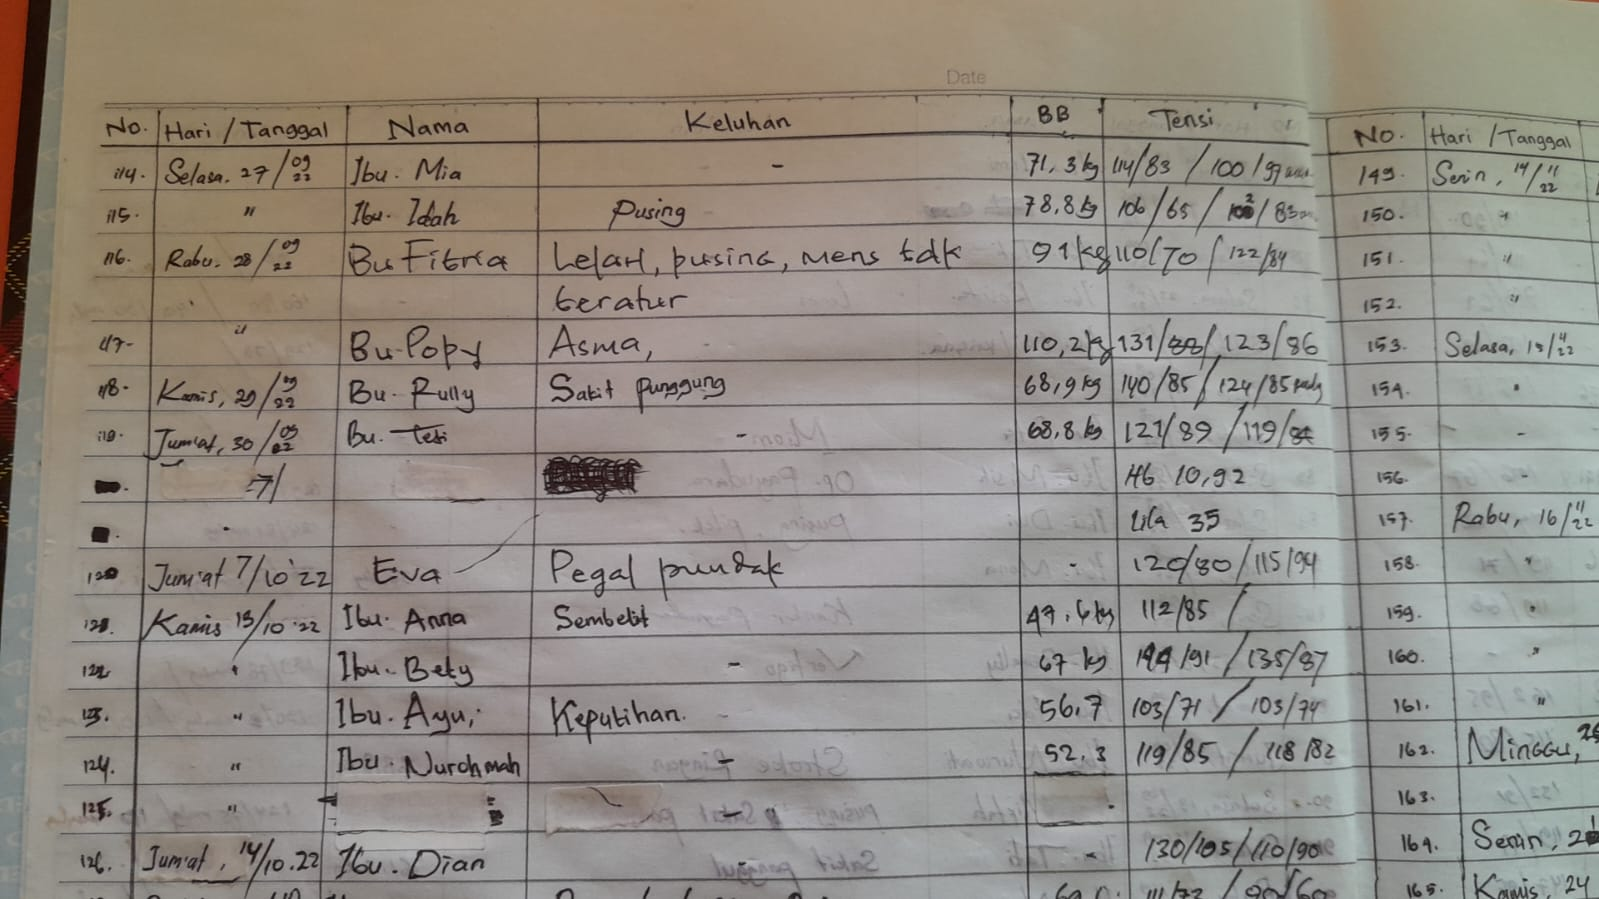 Date
No. Hari / Tanggal Nama Keluhan BB Tensi
114. Selasa. 27/09 22 Ibu. Mia - 71,3 kg 114/83 / 100/97
115. " Ibu. Idah Pusing 78,8 kg 106/65 / /83
116. Rabu. 28/09 22 Bu Fitria Lelah, pusing, mens tdk 91 kg 110/70 / 122/84
teratur
117. " Bu. Popy Asma, 110,2 kg 131/88/ 123/86
118. Kamis, 29/09 22 Bu. Rully Sakit punggung 68,9 kg 140/85 / 124/85
119. Jum'at, 30/09 22 Bu. Teti - 68,8 kg 127/89 / 119/
7/ Hb 10,92
Lila 35
120 Jum'at 7/10'22 Eva Pegal pundak - 120/80/115/94
121. Kamis 13/10.22 Ibu. Anna Sembelit 47.6 kg 112/85 /
122. " Ibu. Bety - 67 kg 144/91 / 135/87
123. " Ibu. Ayu, Keputihan. 56.7 103/71 / 103/74
124. " Ibu. Nurohmah - 52,3 119/85 / 118/82
125. " -
126. Jum'at, 14/10.22 Ibu. Dian - 130/105/110/90
111/73 / 90/60
No. Hari / Tanggal
149. Senin, 14/11 22
150. "
151. "
152. "
153. Selasa, 15/11 22
154. "
155. -
156. -
157. Rabu, 16/11 22
158. "
159. "
160. "
161. "
162. Minggu,
163.
164. Senin,
165. Kamis, 24